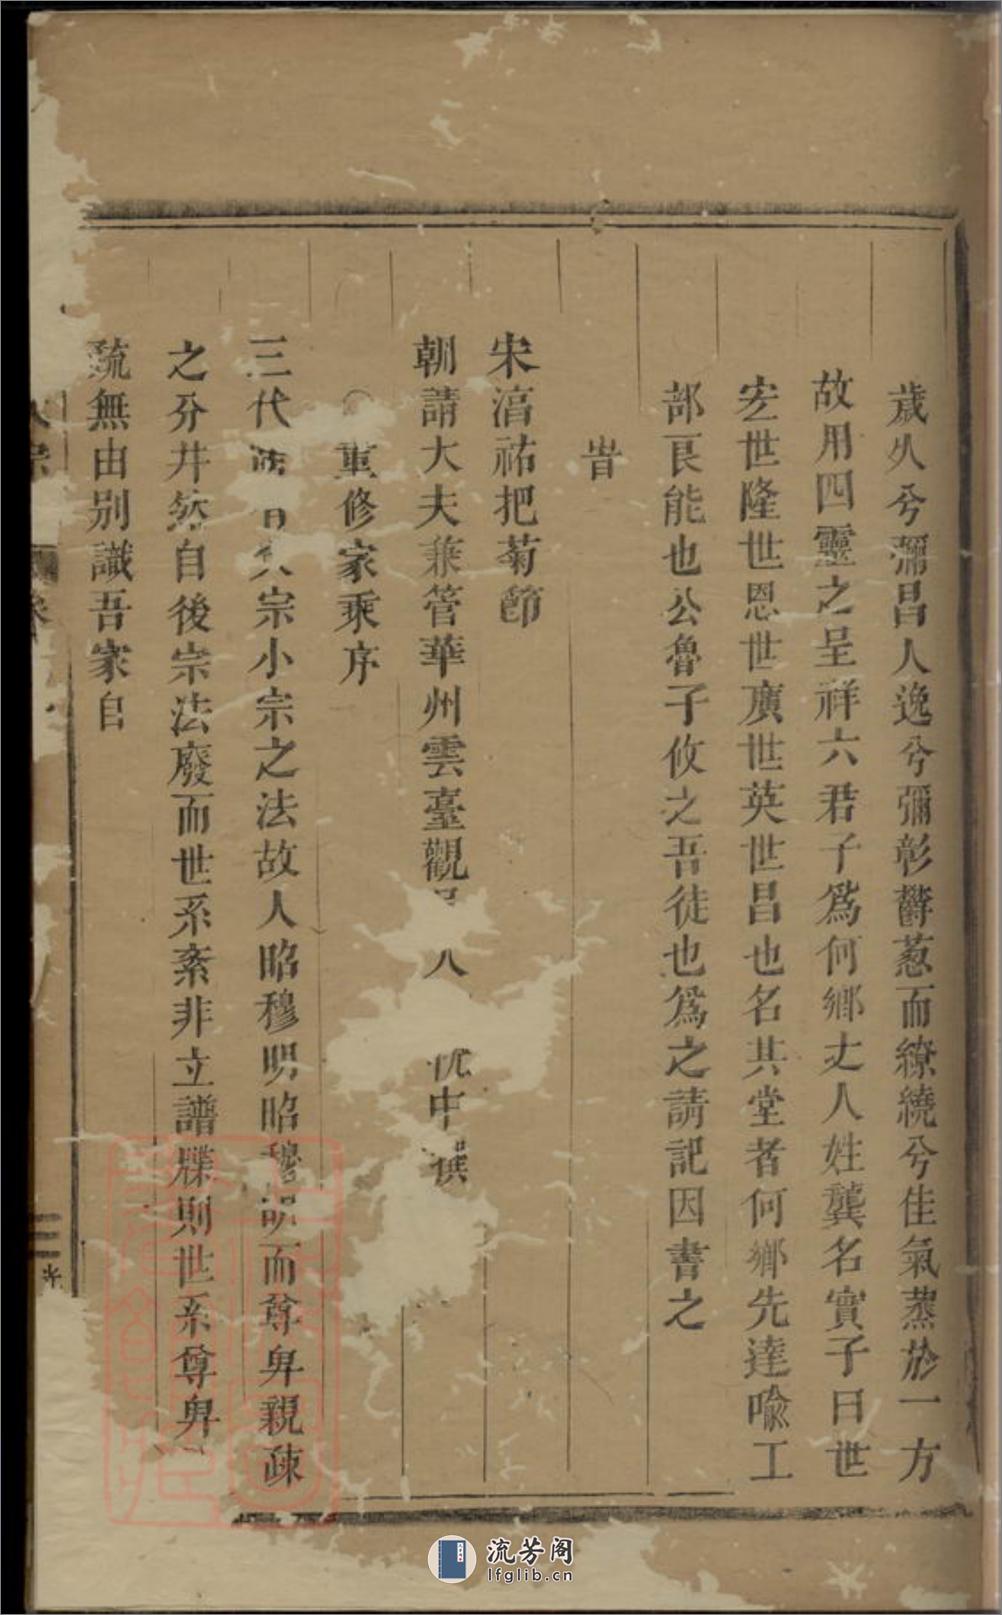 歲久兮彌昌人逸兮彌彰欝葱而繚繞兮佳氣蒸於一方
故用四靈之呈祥六君子為何鄉丈人姓龔名實子曰世
宏世隆世恩世廣世英世昌也名其堂者何鄉先達喻工
部良能也公魯子攸之吾徒也為之請記因書之
旹
宋湻祐把菊節
朝請大夫兼管華州雲臺觀 中 撰
○重修家乘序
三代 宗小宗之法故人昭穆明昭穆明而尊卑親疎
之分井然自後宗法廢而世系紊非立譜牒則世系尊卑
疏無由別識吾家自
流芳阁
lfglib.cn